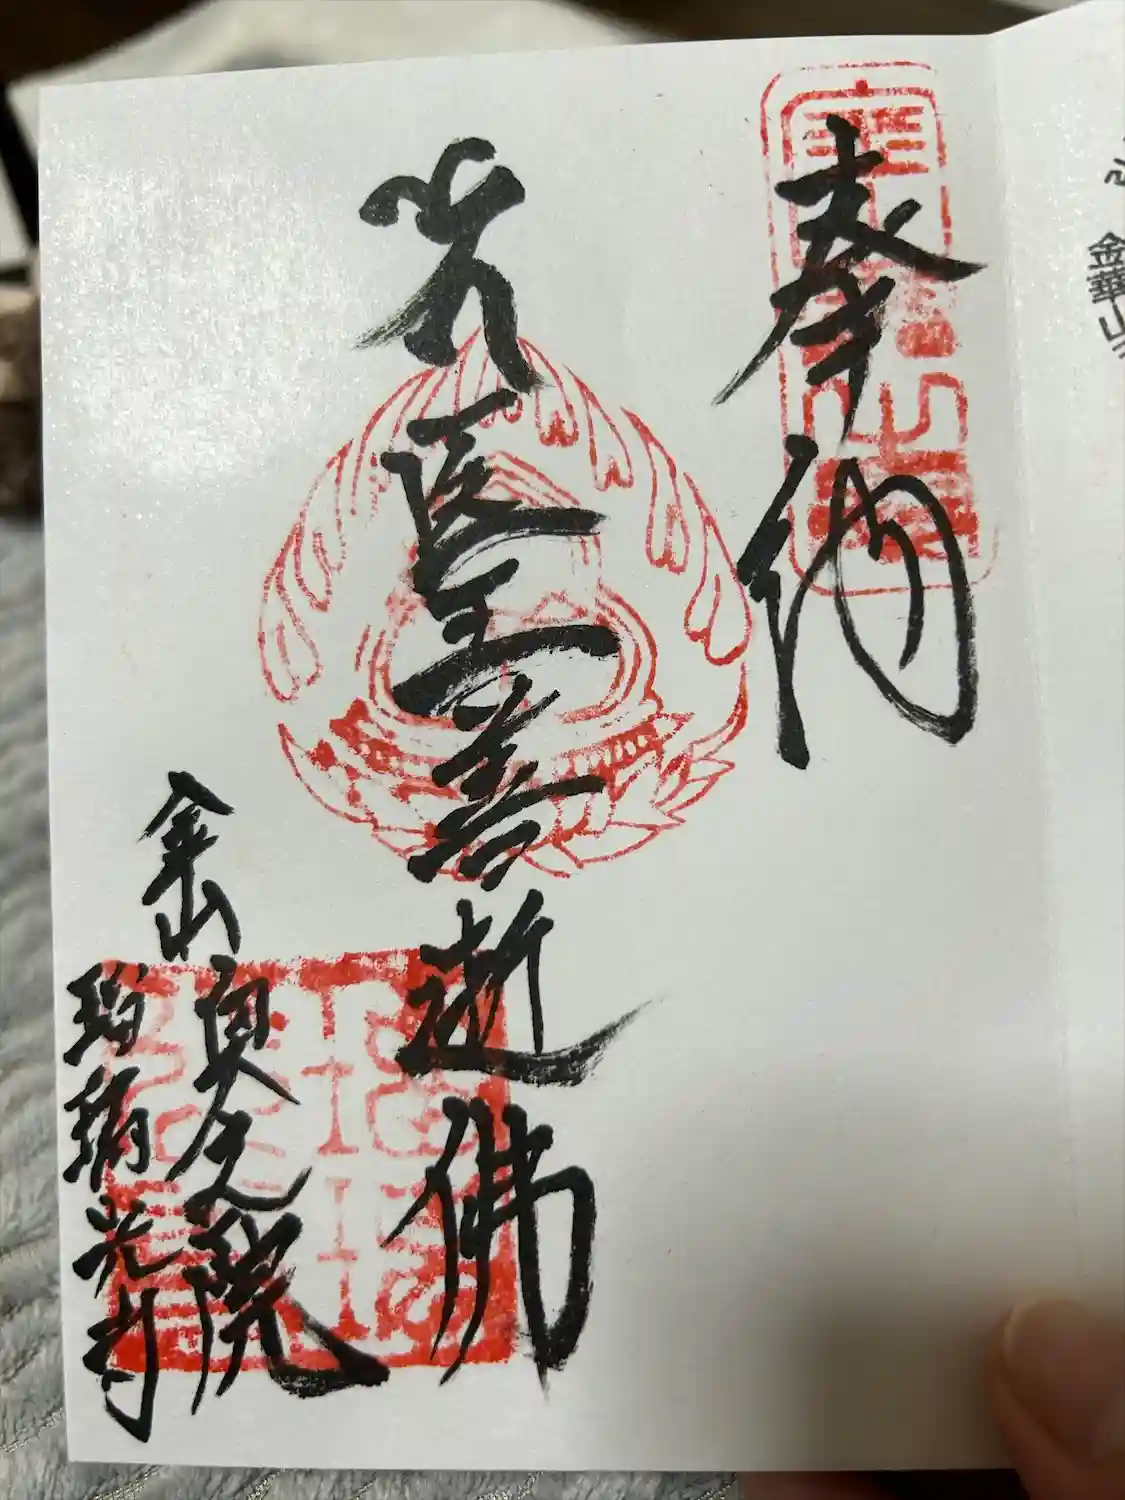 金華山
奉納
光医王善逝佛
金華山奥之院
瑠璃光寺